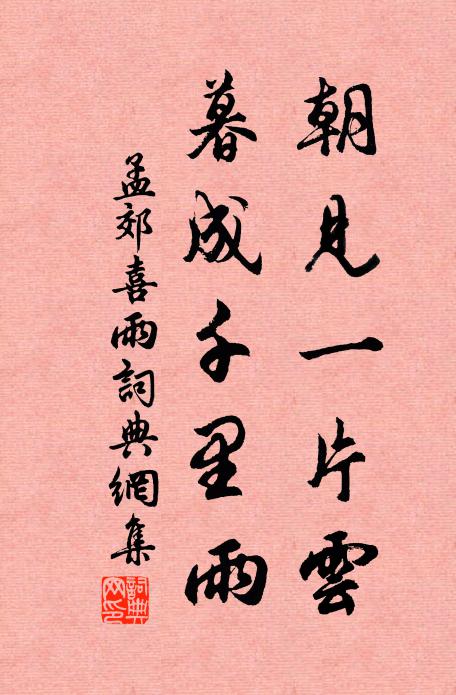 朝見一片雲
暮成千里雨
孟郊喜雨詞典網集
詞典
网印